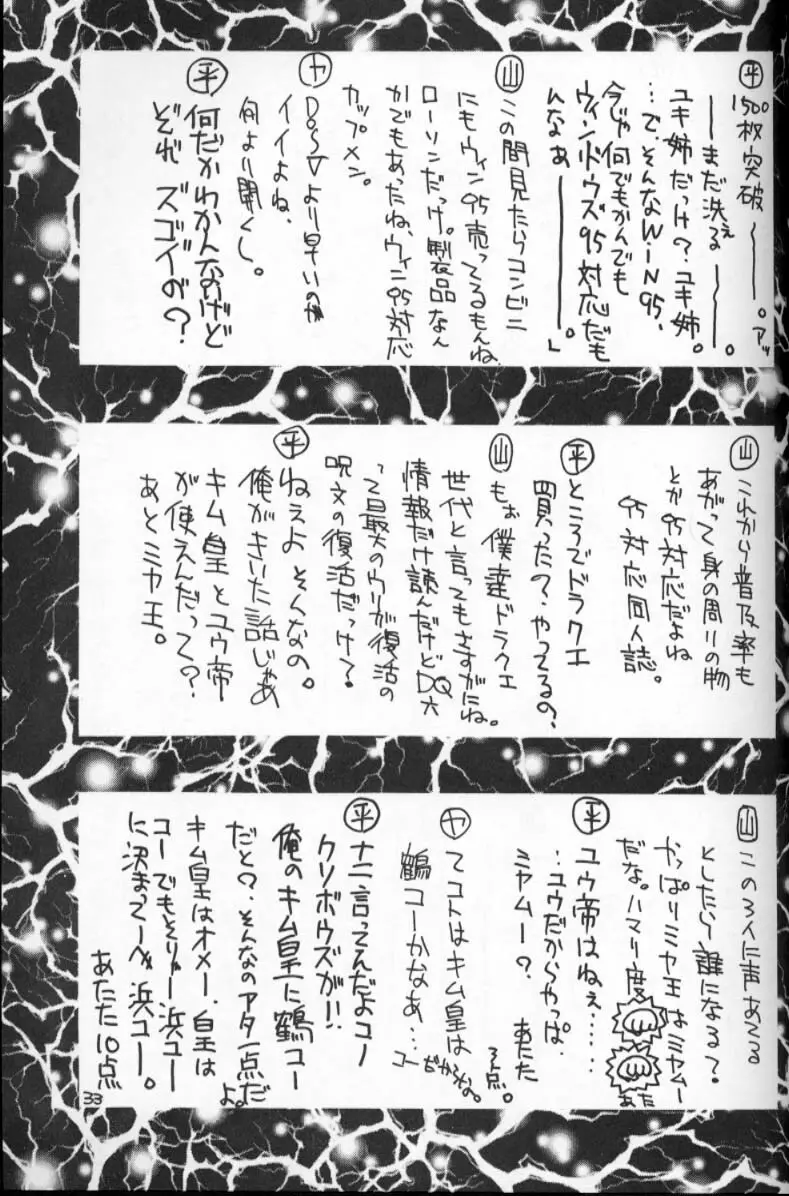 ㊥ 1500枚突破〜〜。アッ
——まだ洗るぇ——。
ユキ姉だっけ?ユキ姉。
…で、そんなWiN95、
今じゃ何でもかんでも
ウィンドウズ95対応だも
んなぁ———。」
㊤ この間見たらコンビニ
にもウィン95売ってるもんね
ローソンだっけ。製品なん
かでもあったね、ウィン95対応
カップメン。
ヤ DOS/Vより早いのが
イイよね、
何より聞くし。
平 何だかわかんないけど
ぞれ ズゴイが?
山 これから普及率も
あがって身の周りの物
とか95対応だよね
95対応同人誌。
平 ところでドラクエ
買ったの?やってるの?
山 もお僕達ドラクエ
世代と言ってもさすがにね。
情報だけ読んだけどDQ六
って最大のウリが復活の
呪文の復活だっけ?
平 ねぇよそんなの。
俺がきいた話じゃあ
キム皇とユウ帝
が使えんだって?
あとミヤ王。
山 この3人に声あてる
としたら誰になる?
やっぱりミヤ王はミヤムー
だな。ハマリ度
あた
平 ユウ帝はねぇ……
…ユウだからやっぱ
ミヤムー? あたた
3点。
ヤ てコトはキム皇は
鶴コーかなあ…
コーだからね。
平 ナニ言ってんだよコノ
クソボウズが!!
俺のキム皇に鶴コー
だと?そんなのアタ一点だ
よ。
キム皇はオメー、皇は
コーでもそりゃー浜コー
に決まってーべ浜コー。
あたた10点
33